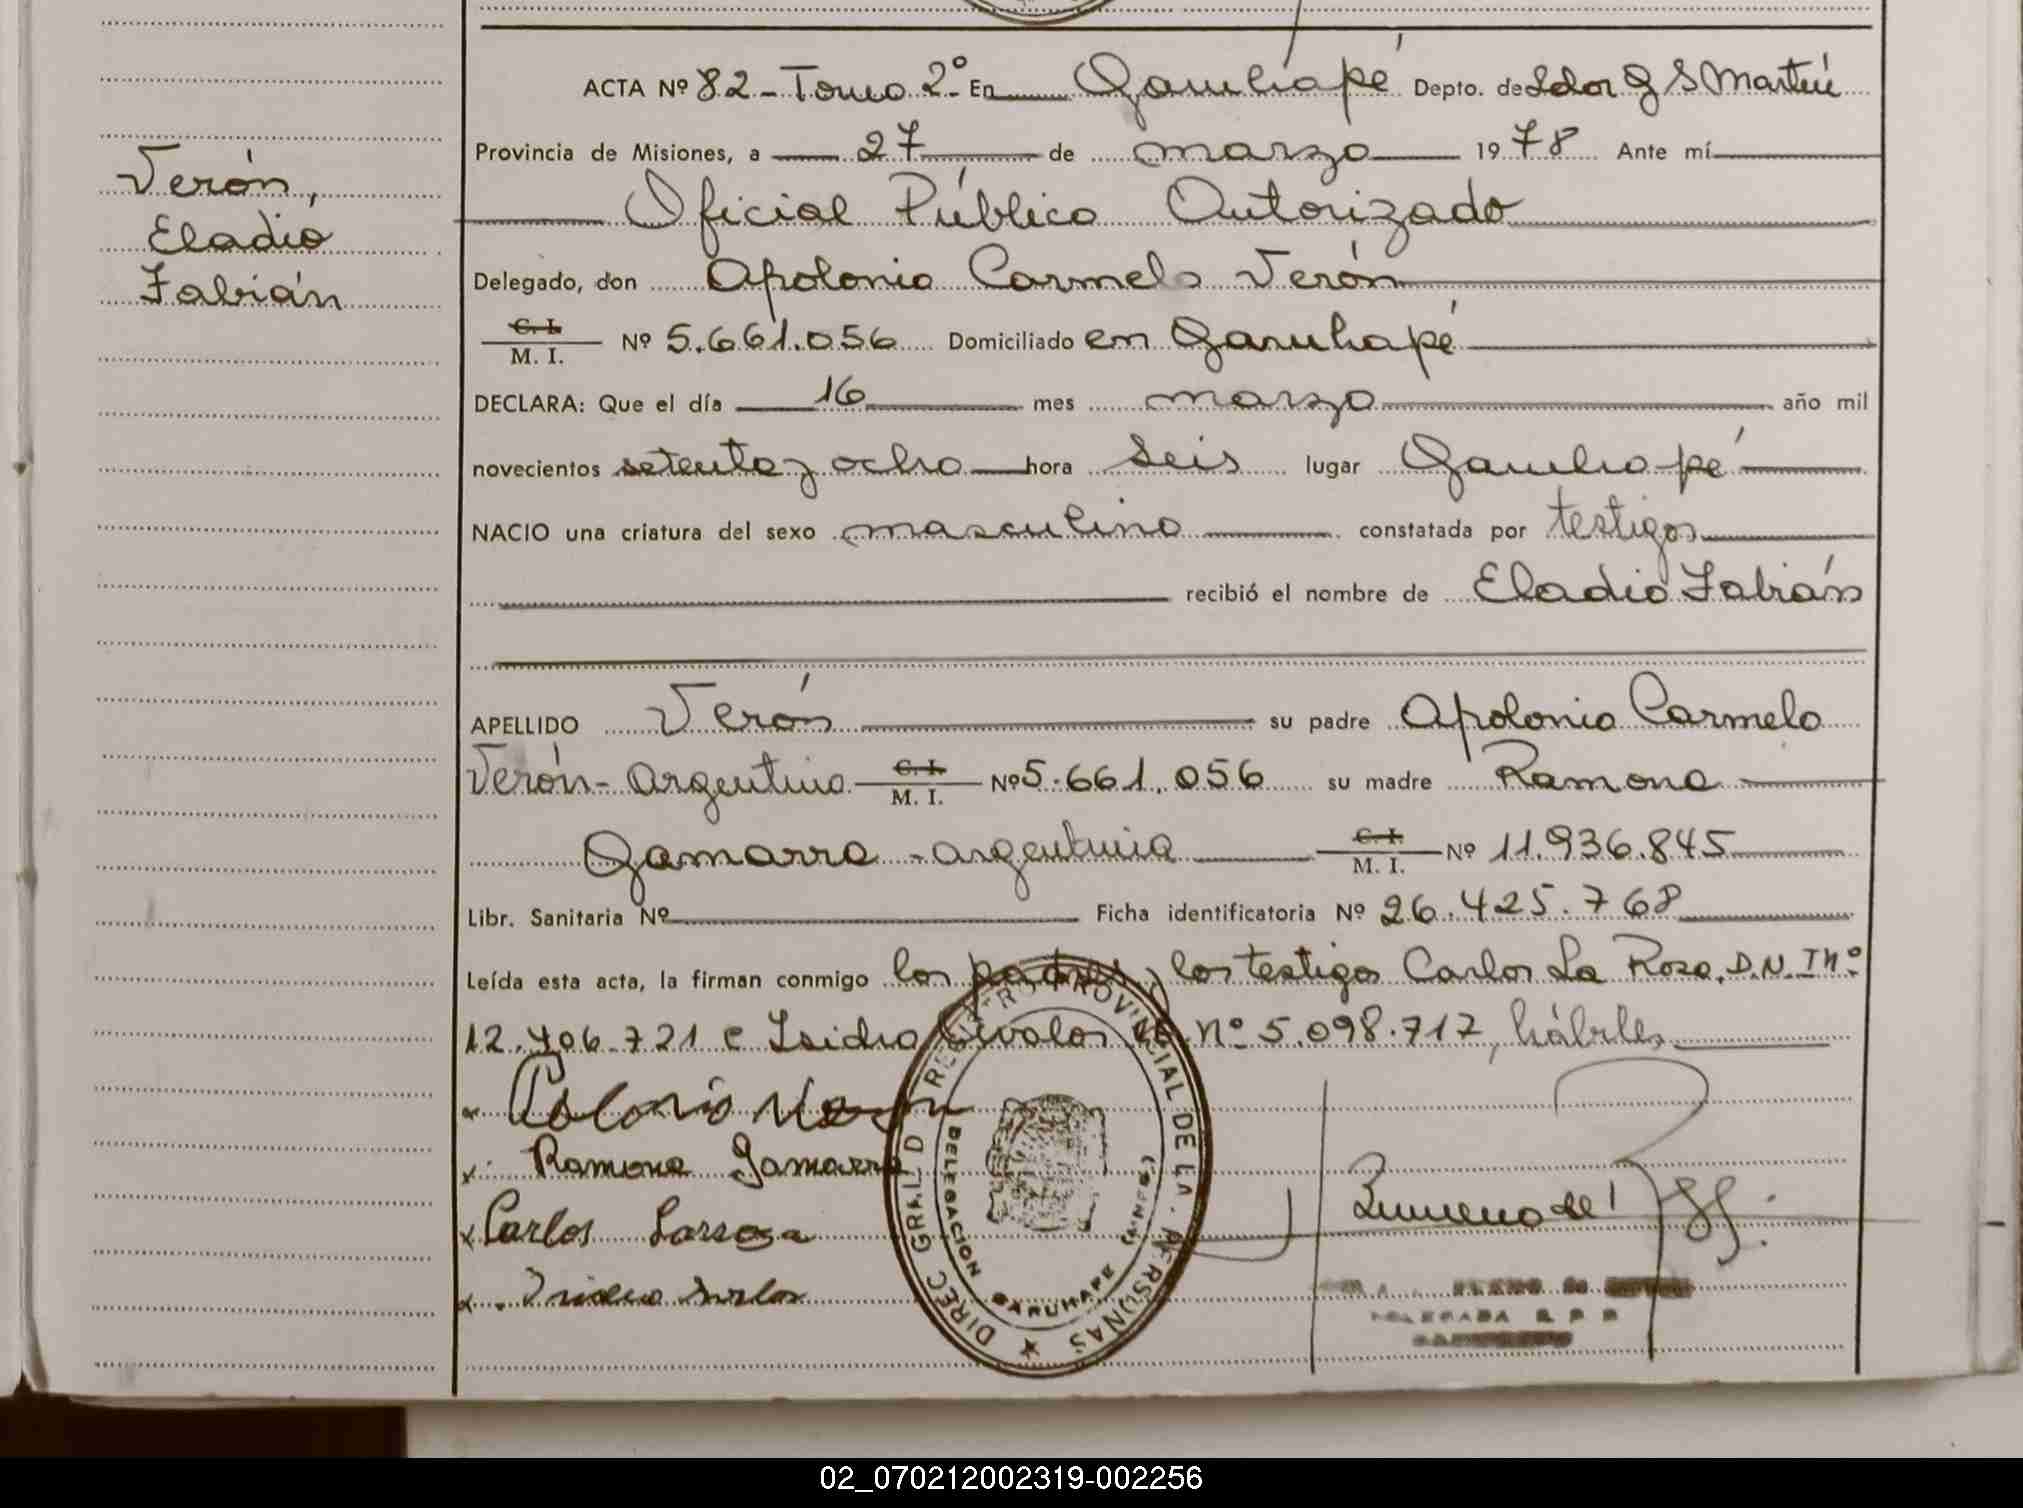 ACTA Nº 82 - Tomo 2º En Garuhapé Depto. de Ldor G S Martín
Provincia de Misiones, a 27 de marzo 1978 Ante mí
Verón,
Oficial Público Autorizado
Eladio
Delegado, don Apolonio Carmelo Verón
Fabián
C. I. M. I. Nº 5.661.056 Domiciliado en Garuhapé
DECLARA: Que el día 16 mes marzo año mil
novecientos setenta y ocho hora seis lugar Garuhapé
NACIO una criatura del sexo masculino constatada por testigos
recibió el nombre de Eladio Fabián
APELLIDO Verón su padre Apolonio Carmelo
Verón - argentino C. I. M. I. Nº 5.661.056 su madre Ramona
Gamarra - argentina C. I. M. I. Nº 11.936.845
Libr. Sanitaria Nº Ficha identificatoria Nº 26.425.768
Leída esta acta, la firman conmigo los padres y los testigos Carlos La Rosa, D.N.I Nº
12.706.721 e Isidro Nº 5.098.717, hábiles
x Polonio Veron
x Ramona Gamarra
x Carlos Larroza
x
DIREC GRAL D REGISTRO PROVINCIAL DE LA PERSONAS
DELEGACION GARUHAPE (MNES)
DELEGADA R P P
02_070212002319-002256